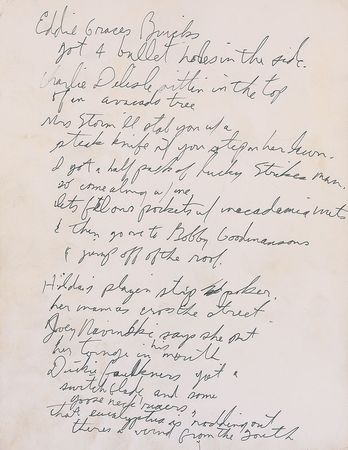 Eddie Graces Buicks
got 4 bullet holes in the side.
Charlie Delisle sittin in the top
of an avocado tree
Mrs Storm'll stab you w/ a
steak knife if you step on her lawn.
I got a half pack of Lucky Strikes man.
so come along w/ me,
lets fill our pockets w/ macadamia nuts
& then go over to Bobby Goodmansons
& jump off of the roof.
Hilda's playin strip poker.
her mamas cross the street
Joey Navinski says she put
her tounge in his mouth
Dickie Faulkners got a
switchblade and some
goose neck risers,
that eucalyptus is nodding out
theres a wind from the South